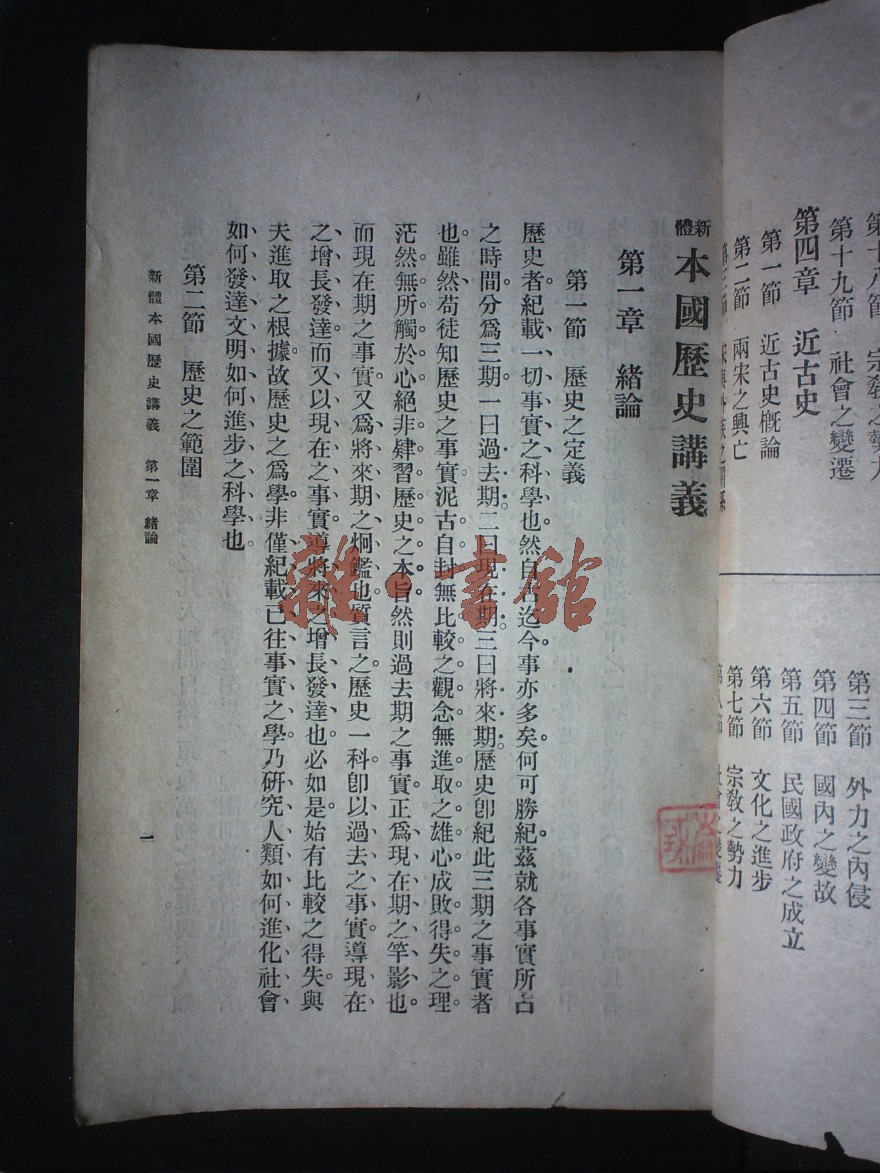 第十八節 宗教之勢力
第十九節 社會之變遷
第四章 近古史
第一節 近古史概論
第二節 兩宋之興亡
第三節 外力之內侵
第四節 國內之變故
第五節 民國政府之成立
第六節 文化之進步
第七節 宗教之勢力
新體本國歷史講義
第一章 緒論
第一節 歷史之定義
歷史者紀載一切事實之科學也然自古迄今事亦多矣何可勝紀茲就各事實所占
之時間分爲三期一曰過去期二曰現在期三曰將來期歷史卽紀此三期之事實者
也雖然苟徒知歷史之事實泥古自封無比較之觀念無進取之雄心成敗得失之理
茫然無所觸於心絕非肄習歷史之本旨然則過去期之事實正爲現在期之竿影也
而現在期之事實又爲將來期之炯鑑也質言之歷史一科卽以過去之事實導現在
之增長發達而又以現在之事實導將來之增長發達也必如是始有比較之得失與
夫進取之根據故歷史之爲學非僅紀載已往事實之學乃研究人類如何進化社會
如何發達文明如何進步之科學也
第二節 歷史之範圍
新體本國歷史講義 第一章 緒論
一
雜·書館